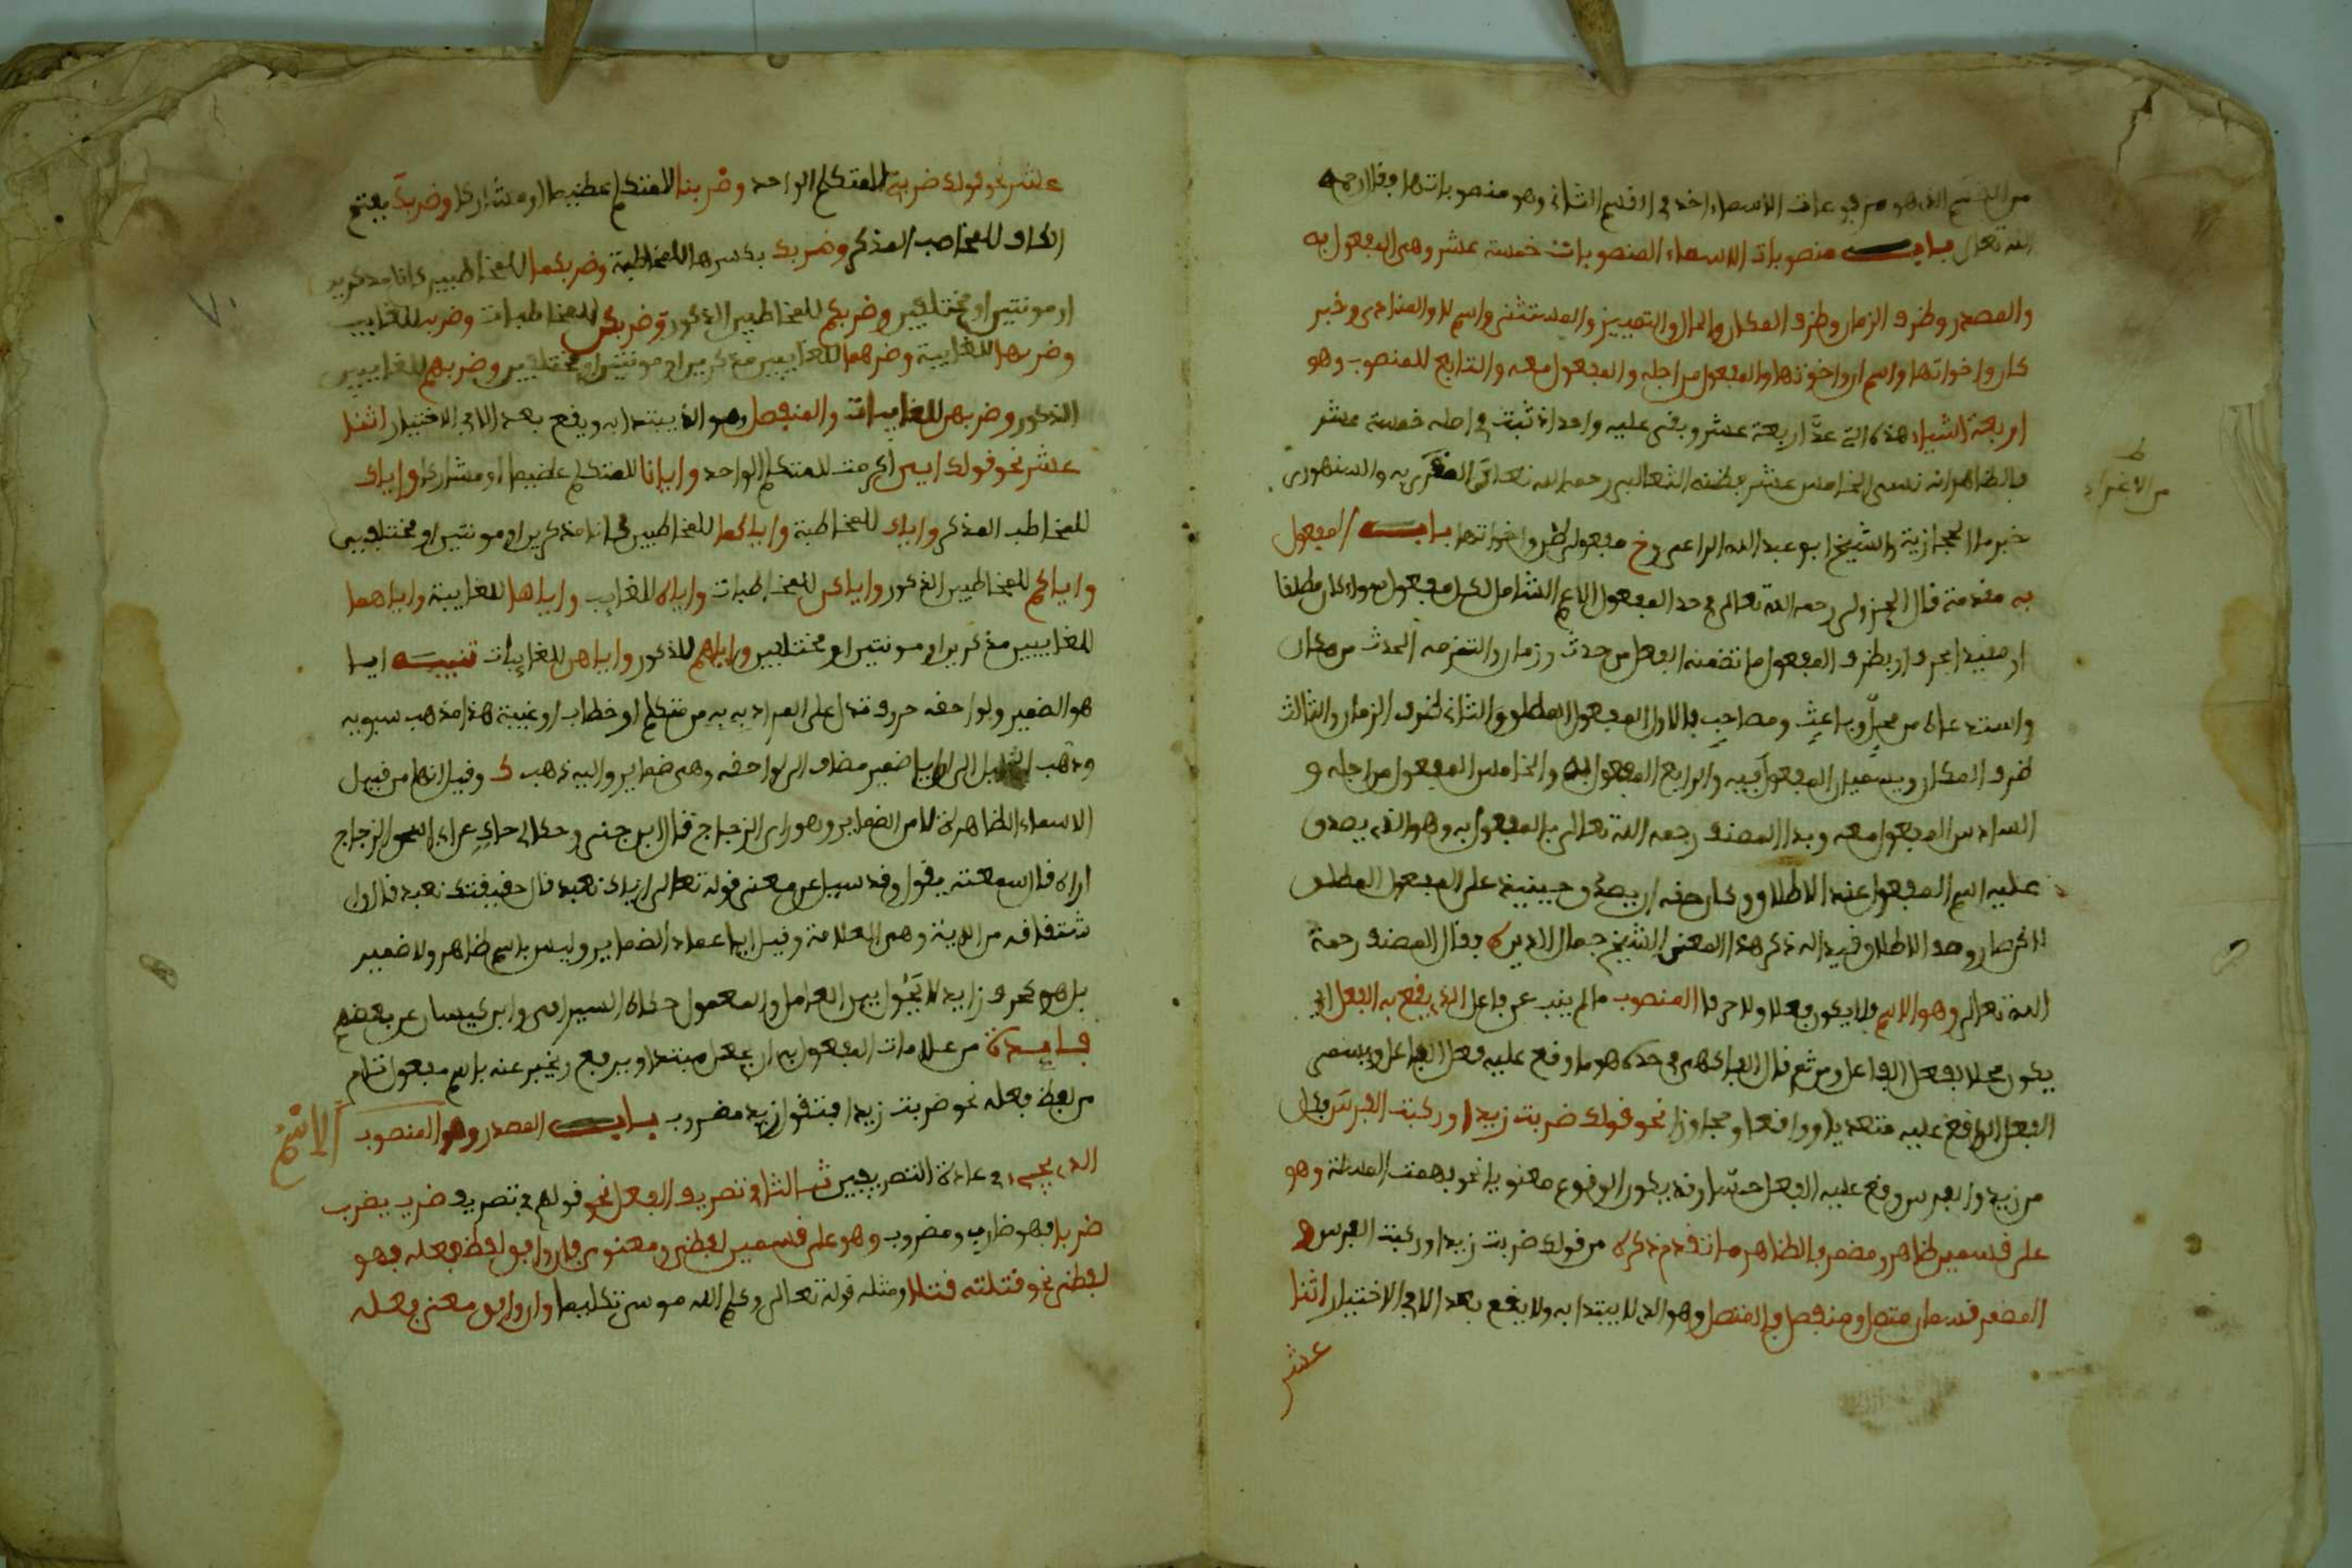 من القسم الذي هو مرفوعات الاسماء اخذ في القسم الثاني وهو منصوباتها فقال رحمه
الله تعالى باب منصوبات الاسماء المنصوبات خمسة عشر وهي المفعول به
والمصدر وظرف الزمان وظرف المكان والحال والتمييز والمستثنى واسم لا والمنادى وخبر
كان واخواتها واسم ان واخوتها والمفعول من اجله والمفعول معه والتابع للمنصوب وهو
اربعة اشياء هذه التي عدّ اربعة عشر وبقى عليه واحد اذ ثبت في اصله خمسة عشر
فالظاهر انه نسى الخامس عشر فظنه الثعالبي رحمه الله تعالى والسنهوري
خبر ما الحجازية والشيخ ابو عبد الله الراعي مفعولي ظن واخواتها باب المفعول
به مقدمة قال الجزولي رحمه الله تعالى في حد المفعول الاعم الشامل لكل مفعول سواء كان مطلقا
او مقيدا بحرف او بظرف المفعول ما تضمنه الفعل من حدث وزمان والتزمه الحدث من مكان
واستدعاه من محلٍّ وباعثٍ ومصاحبٍ فالاول المفعول المطلق والثاني ظرف الزمان والثالث
ظرف المكان ويسميان المفعول فيه والرابع المفعول به والخامس المفعول من اجله و
السادس المفعول معه وبدا المصنف رحمه الله تعالى بالمفعول به وهو الذي يصدق
عليه اسم المفعول عند الاطلاق وكان حقه ان يصدق حينئذ على المفعول المطلق
لاكن صار وصف الاطلاق قيد اله ذكر هذا المعنى الشيخ جمال الدين فقال المصنف رحمة
الله تعالى وهو الاسم فلا يكون فعلا ولا حرفا المنصوب ما لم ينب عن فاعل الذي يقع به الفعل اي
يكون محلا لفعل الفاعل ومن ثم قال الفاكهي في حده هو ما وقع عليه فعل الفاعل ويسمى
الفعل الواقع عليه متعديا وواقعا ومجاوزا نحو قولك ضربت زيدا وركبت الفرس فكل
من زيد والفرس وقع عليه الفعل حسّا وقد يكون الوقوع معنويا نحو فهمت المسئلة وهو
على قسمين ظاهر ومضمر فالظاهر ما تقدم ذكره من قولك ضربت زيدا وركبت الفرس و
المضمر قسمان متصل ومنفصل فالمتصل وهو الذي لا يبتدا به ولا يقع بعد الا في الاختيار اثنا
عشر
ط
من الاغراء
عشر نحو قولك ضربني للمتكلم الواحد وضربنا للمتكلم عظيما او مشاركا وضربكَ بفتح
الكاف للمخاطب المذكر وضربكِ بكسرها للمخاطبة وضربكما للمخاطبين كانا مذكرين
او مونثين او مختلفين وضربكم للمخاطبين الذكور وضربكن للمخاطبات وضربه للغايب
وضربها للغايبة وضربهما للغايبين مذكرين او مونثين او مختلفين وضربهم للغايبين
الذكور وضربهن للغايبات والمنفصل وهو الذي يبتدا به ويقع بعد الا في الاختيار اثنا
عشر نحو قولك اياى اكرمت للمتكلم الواحد وايانا للمتكلم عظيما او مشاركا واياك
للمخاطب المذكر واياك للمخاطبة واياكما للمخاطبين كانا مذكرين او مونثين او مختلفين
واياكم للمخاطبين الذكور واياكن للمخاطبات واياه للغايب واياها للغايبة واياهما
للغايبين مذكرين او مونثين او مختلفين واياهم للذكور واياهن للغايبات تنبيه ايا
هو الضمير ولواحقه حروف تدل على المراد به من متكلم او خطاب او غيبة هذا مذهب سيبويه
وذهب الخليل الى ان ايا ضمير مضاف الى لواحقه وهي ضماير واليه ذهب ك وقيل انها من قبيل
الاسماء الظاهرة لا من الضماير وهو راي الزجاج قال ابن جني وحكى لي حاكٍ عن ابي اسحق الزجاج
اراه قال سمعته يقول وقد سيل عن معنى قوله تعالى اياك نعبد قال حقيقتك نعبد قال وا
شتقاقه من الاية وهي العلامة وقيل ايا عماد الضماير وليس باسم ظاهر ولا ضمير
بل هو كحرف زايد لا يحول بين العامل والمعمول حكاه السيرافي وابن كيسان عن بعضهم
فايدة من علامات المفعول به ان يجعل مبتدا ويرفع ويخبر عنه باسم مفعول تام
من لفظ فعله نحو ضربت زيدا فتقول زيد مضروب باب المصدر وهو المنصوب الاسْمُ
الذي يجيء في عادة التصريفيين ثالثا في تصريف الفعل نحو قولهم في تصريف ضرب يضرب
ضربا فهو ضارب ومضروب وهو على قسمين لفظي ومعنوي فان وافق لفظه فعله فهو
لفظي نحو قتلته قتلا ومثله قوله تعالى وكلم الله موسى تكليما وان وافق معنى فعله
٧٠